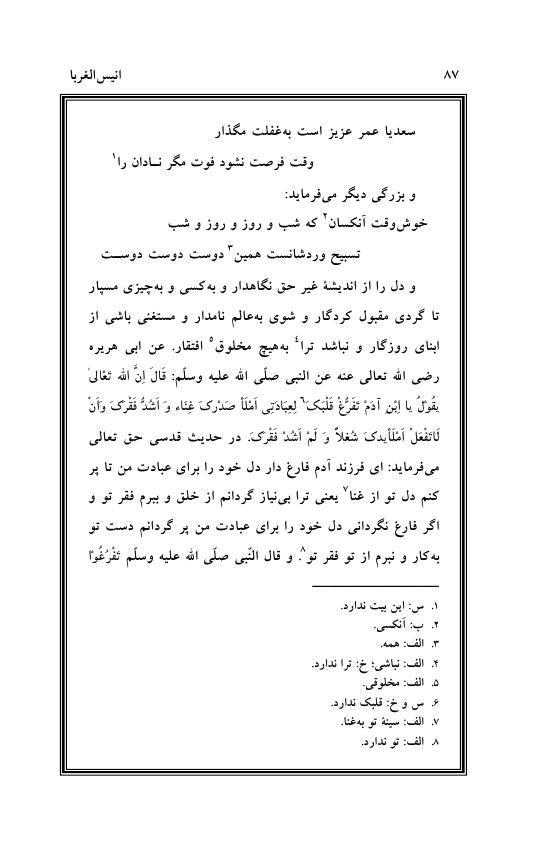 ۸۷
انیس‌الغربا
سعدیا عمر عزیز است به‌غفلت مگذار
وقت فرصت نشود فوت مگر نـادان را۱
و بزرگی دیگر می‌فرماید:
خوش‌وقت آنکسان۲ که شب و روز و روز و شب
تسبیح وردشانست همین۳ دوست دوست دوسـت
و دل را از اندیشهٔ غیر حق نگاهدار و به‌کسی و به‌چیزی مسپار
تا گردی مقبول کردگار و شوی به‌عالم نامدار و مستغنی باشی از
ابنای روزگار و نباشد ترا۴ به‌هیچ مخلوق۵ افتقار. عن ابی هریره
رضی الله تعالی عنه عن النبی صلّی الله علیه وسلّم: قَالَ اِنَّ الله تَعَالیٰ
یقُولُ یا اِبْن آدَمَ تَفَرُّغْ قَلْبَکَ۶ لِعِبَادَتِی اَمْلَأ صَدْرَکَ غِنَاء وَ اَشُدُّ فَقْرَکَ وَاَنْ
لَاتَفْعَلْ اَمْلَأیدَکَ شُغلاً وَ لَمْ اَشُدْ فَقْرَکَ. در حدیث قدسی حق تعالی
می‌فرماید: ای فرزند آدم فارغ دار دل خود را برای عبادت من تا پر
کنم دل تو از غنا۷ یعنی ترا بی‌نیاز گردانم از خلق و ببرم فقر تو و
اگر فارغ نگردانی دل خود را برای عبادت من پر گردانم دست تو
به‌کار و نبرم از تو فقر تو۸. و قال النّبی صلّی الله علیه وسلّم تَفَرُغُوا
۱. س: این بیت ندارد.
۲. ب: آنکسی.
۳. الف: همه.
۴. الف: نباشی؛ خ: ترا ندارد.
۵. الف: مخلوقی.
۶. س و خ: قلبک ندارد.
۷. الف: سینهٔ تو به‌غنا.
۸. الف: تو ندارد.